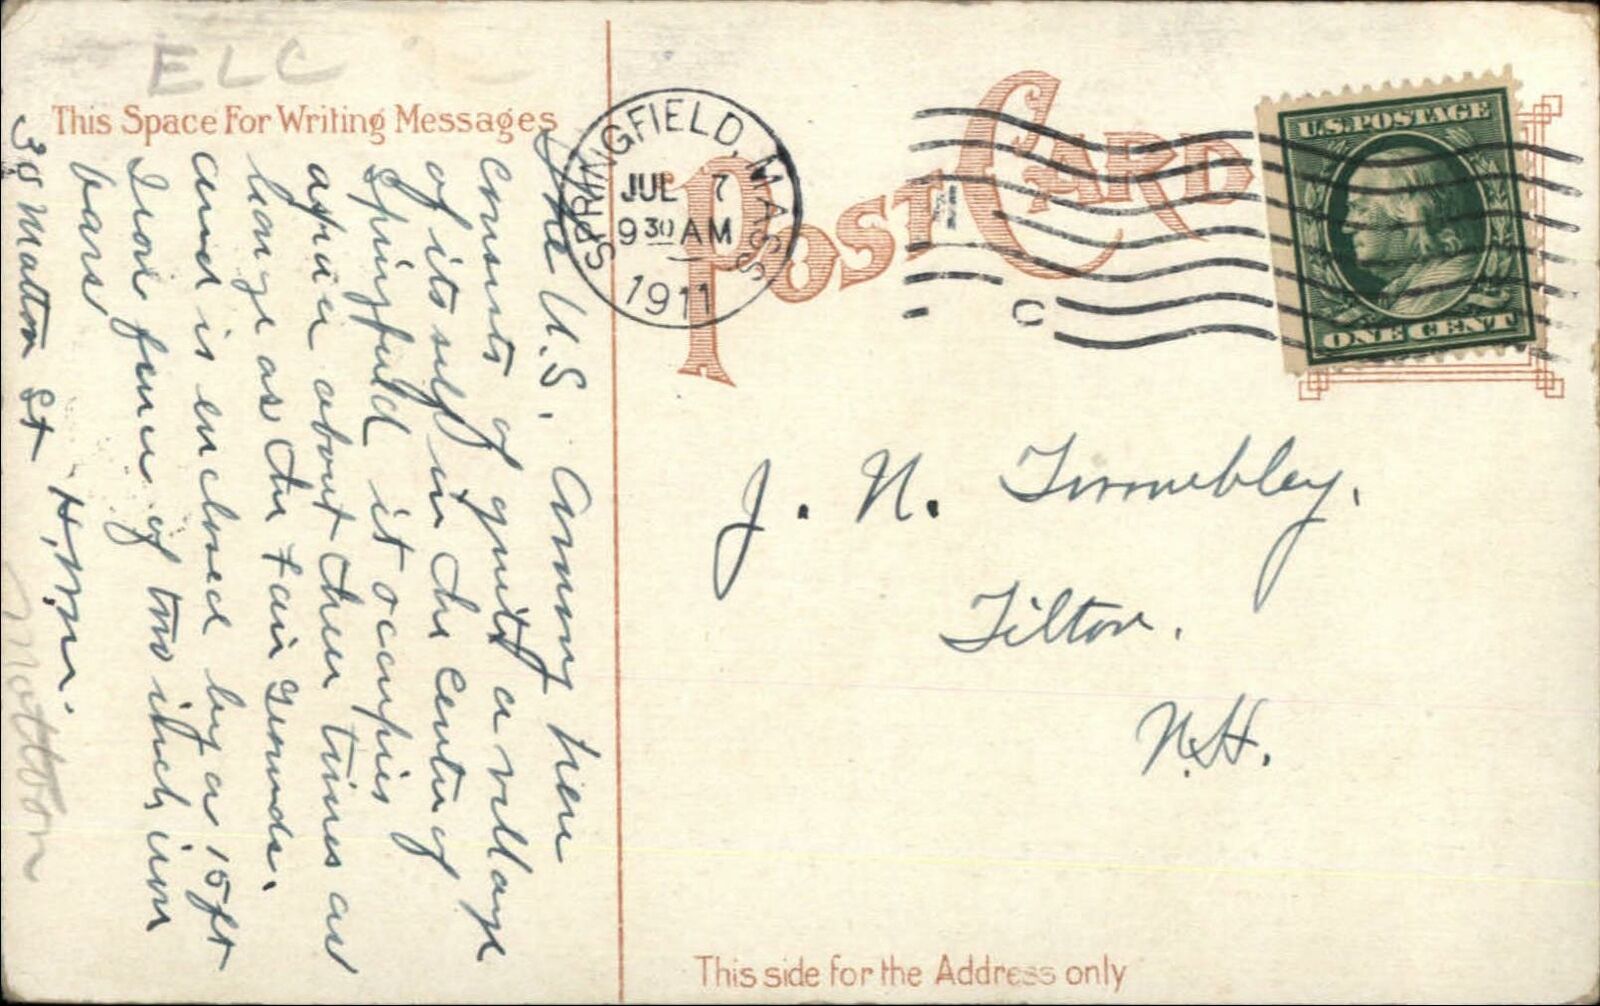 ELC
This Space For Writing Messages
The U.S. Armory here
consists of quite a village
of its self in the center of
Springfield it occupies
a space about three times as
large as the fair grounds.
and is enclosed by a 15 ft
Iron fence of two inch iron
bars
H.M.
30 Mattoon St
Mattoon
SPRINGFIELD, MASS.
JUL 7
9 30 AM
1911
POST CARD
C
U.S. POSTAGE
ONE CENT
J. N.
Tilton.
N.H.
This side for the Address only